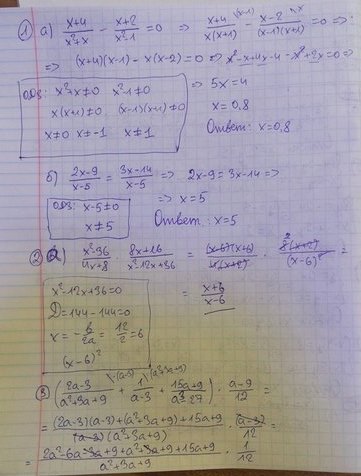 ① а) (x+4)/(x²+x) - (x+2)/(x²-1) = 0 ⇒ (x+4)/(x(x+1)) \(x-1) - (x-2)/((x-1)(x+1)) \x = 0 ⇒
⇒ (x+4)(x-1) - x(x-2) = 0 ⇒ x² - x + 4x - 4 - x² + 2x = 0 ⇒
ОДЗ: x²+x≠0 x²-1≠0
x(x+1)≠0 (x-1)(x+1)≠0
x≠0 x≠-1 x≠1
⇒ 5x = 4
x = 0,8
Ответ: x=0,8
б) (2x-9)/(x-5) = (3x-14)/(x-5) ⇒ 2x-9 = 3x-14 ⇒
⇒ x=5
ОДЗ: x-5≠0
x≠5
Ответ: x=5
② а) (x²-36)/(4x+8) · (8x+16)/(x²-12x+36) = (x-6)(x+6)/(4(x+2)) · 8(x+2)/(x-6)² 2 =
= (x+6)/(x-6)
x²-12x+36=0
D=144-144=0
x = -b/2a = 12/2 = 6
(x-6)²
③ ((2a-3)/(a²+3a+9) \(a-3) + 1/(a-3) \(a²+3a+9) + (15a+9)/(a³-27)) · (a-3)/12 =
= ((2a-3)(a-3)+(a²+3a+9)+15a+9)/((a-3)(a²+3a+9)) · (a-3)/12 =
= (2a²-6a-3a+9+a²+3a+9+15a+9)/(a²+3a+9) · 1/12